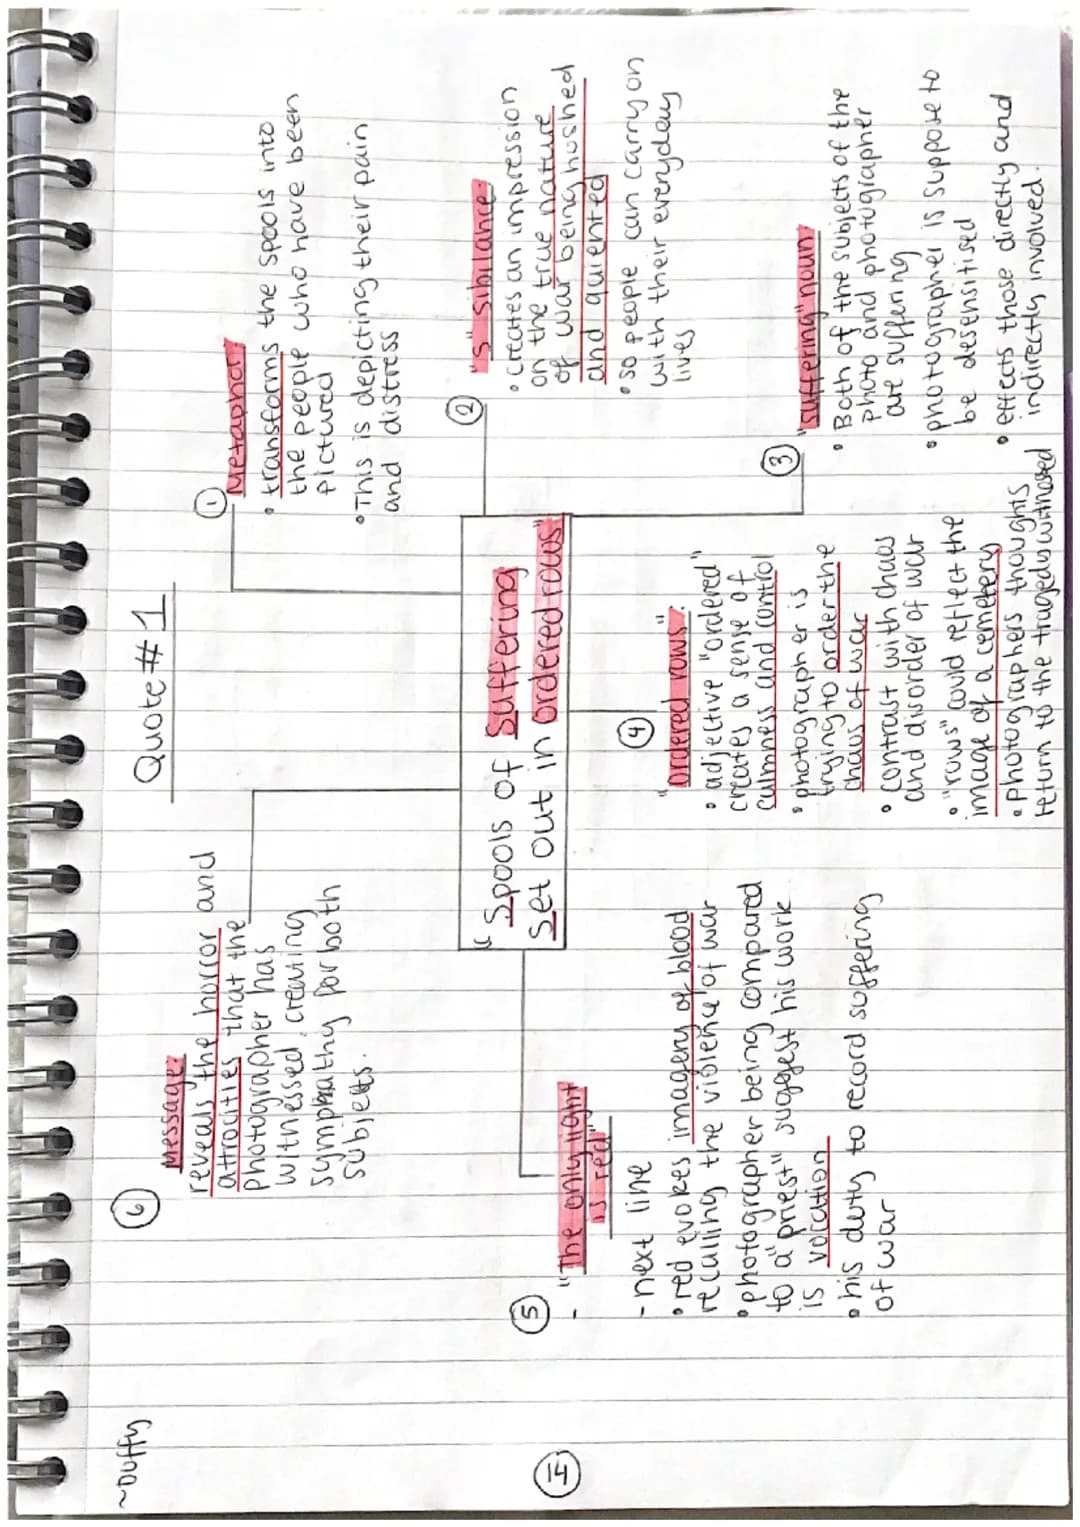 ~Duffy
Quote #1
"Spools of Suffering
Set out in ordered rows"
① Metaphor:
• transforms the spools into
the people who have been
pictured
• This is depicting their pain
and distress
② "S" sibilance:
• creates an impression
on the true nature
of war being hushed
and quiented
• so people can carry on
with their everyday
lives
③ "suffering" noun:
• Both of the subjects of the
photo and photographer
are suffering
• photographer is suppose to
be desensitised
• effects those directly and
indirectly involved.
④ "ordered rows":
• adjective "ordered"
creates a sense of
calmness and control
• photographer is
trying to order the
chaos of war
• contrast with chaos
and disorder of war
• "rows" could reflect the
image of a cemetery
• photographers thoughts
return to the tragedy withosed
⑤ - "The only light
is red"
- next line
• red evokes imagery of blood
recalling the violence of war
• photographer being compared
to a "priest" suggest his work
is vocation
• his duty to record suffering
of war
⑥ Message:
reveals the horror and
attrocities that the
photographer has
witnessed, creating
sympathy for both
subjects.
⑭